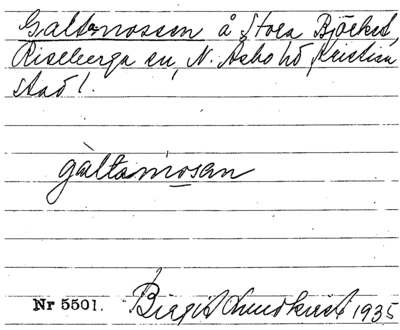 Galtamossen å Stora Björket,
Riseberga sn, N. Åsbo hd, Kristian
stad l.
gàltamósen
Nr 5501.
Birgit Lundkvist 1935